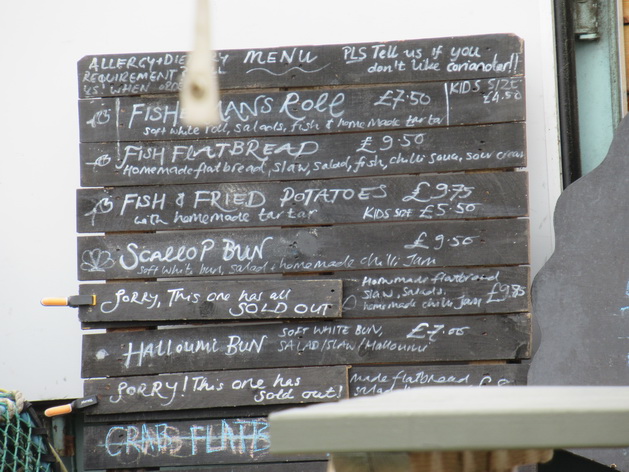 ALLERGY+DIETARY MENU PLS Tell us if you
REQUIREMENT don't like coriander!!
US! WHEN
FISHERMANS ROLL £7.50 KIDS SIZE
£4.50
soft white roll, salads, fish & homemade tartar
FISH FLATBREAD £9.50
Homemade flatbread, slaw, salad, fish, chilli sauce, sour cream
FISH & FRIED POTATOES £9.75
with homemade tartar KIDS SIZE £5.50
SCALLOP BUN £9.50
soft white bun, salad & homemade chilli Jam
SORRY, This one has all
SOLD OUT
Homemade flatbread
Slaw, salads,
homemade chilli Jam
HALLOUMI BUN SOFT WHITE BUN, £7.00
SALAD/SLAW/Halloumi
SORRY! This one has
sold out!
made flatbread
CRAB FLATB